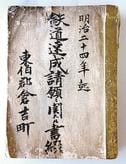 明治二十四年起
鉄道速成請願ニ関スル書類
東伯郡倉吉町